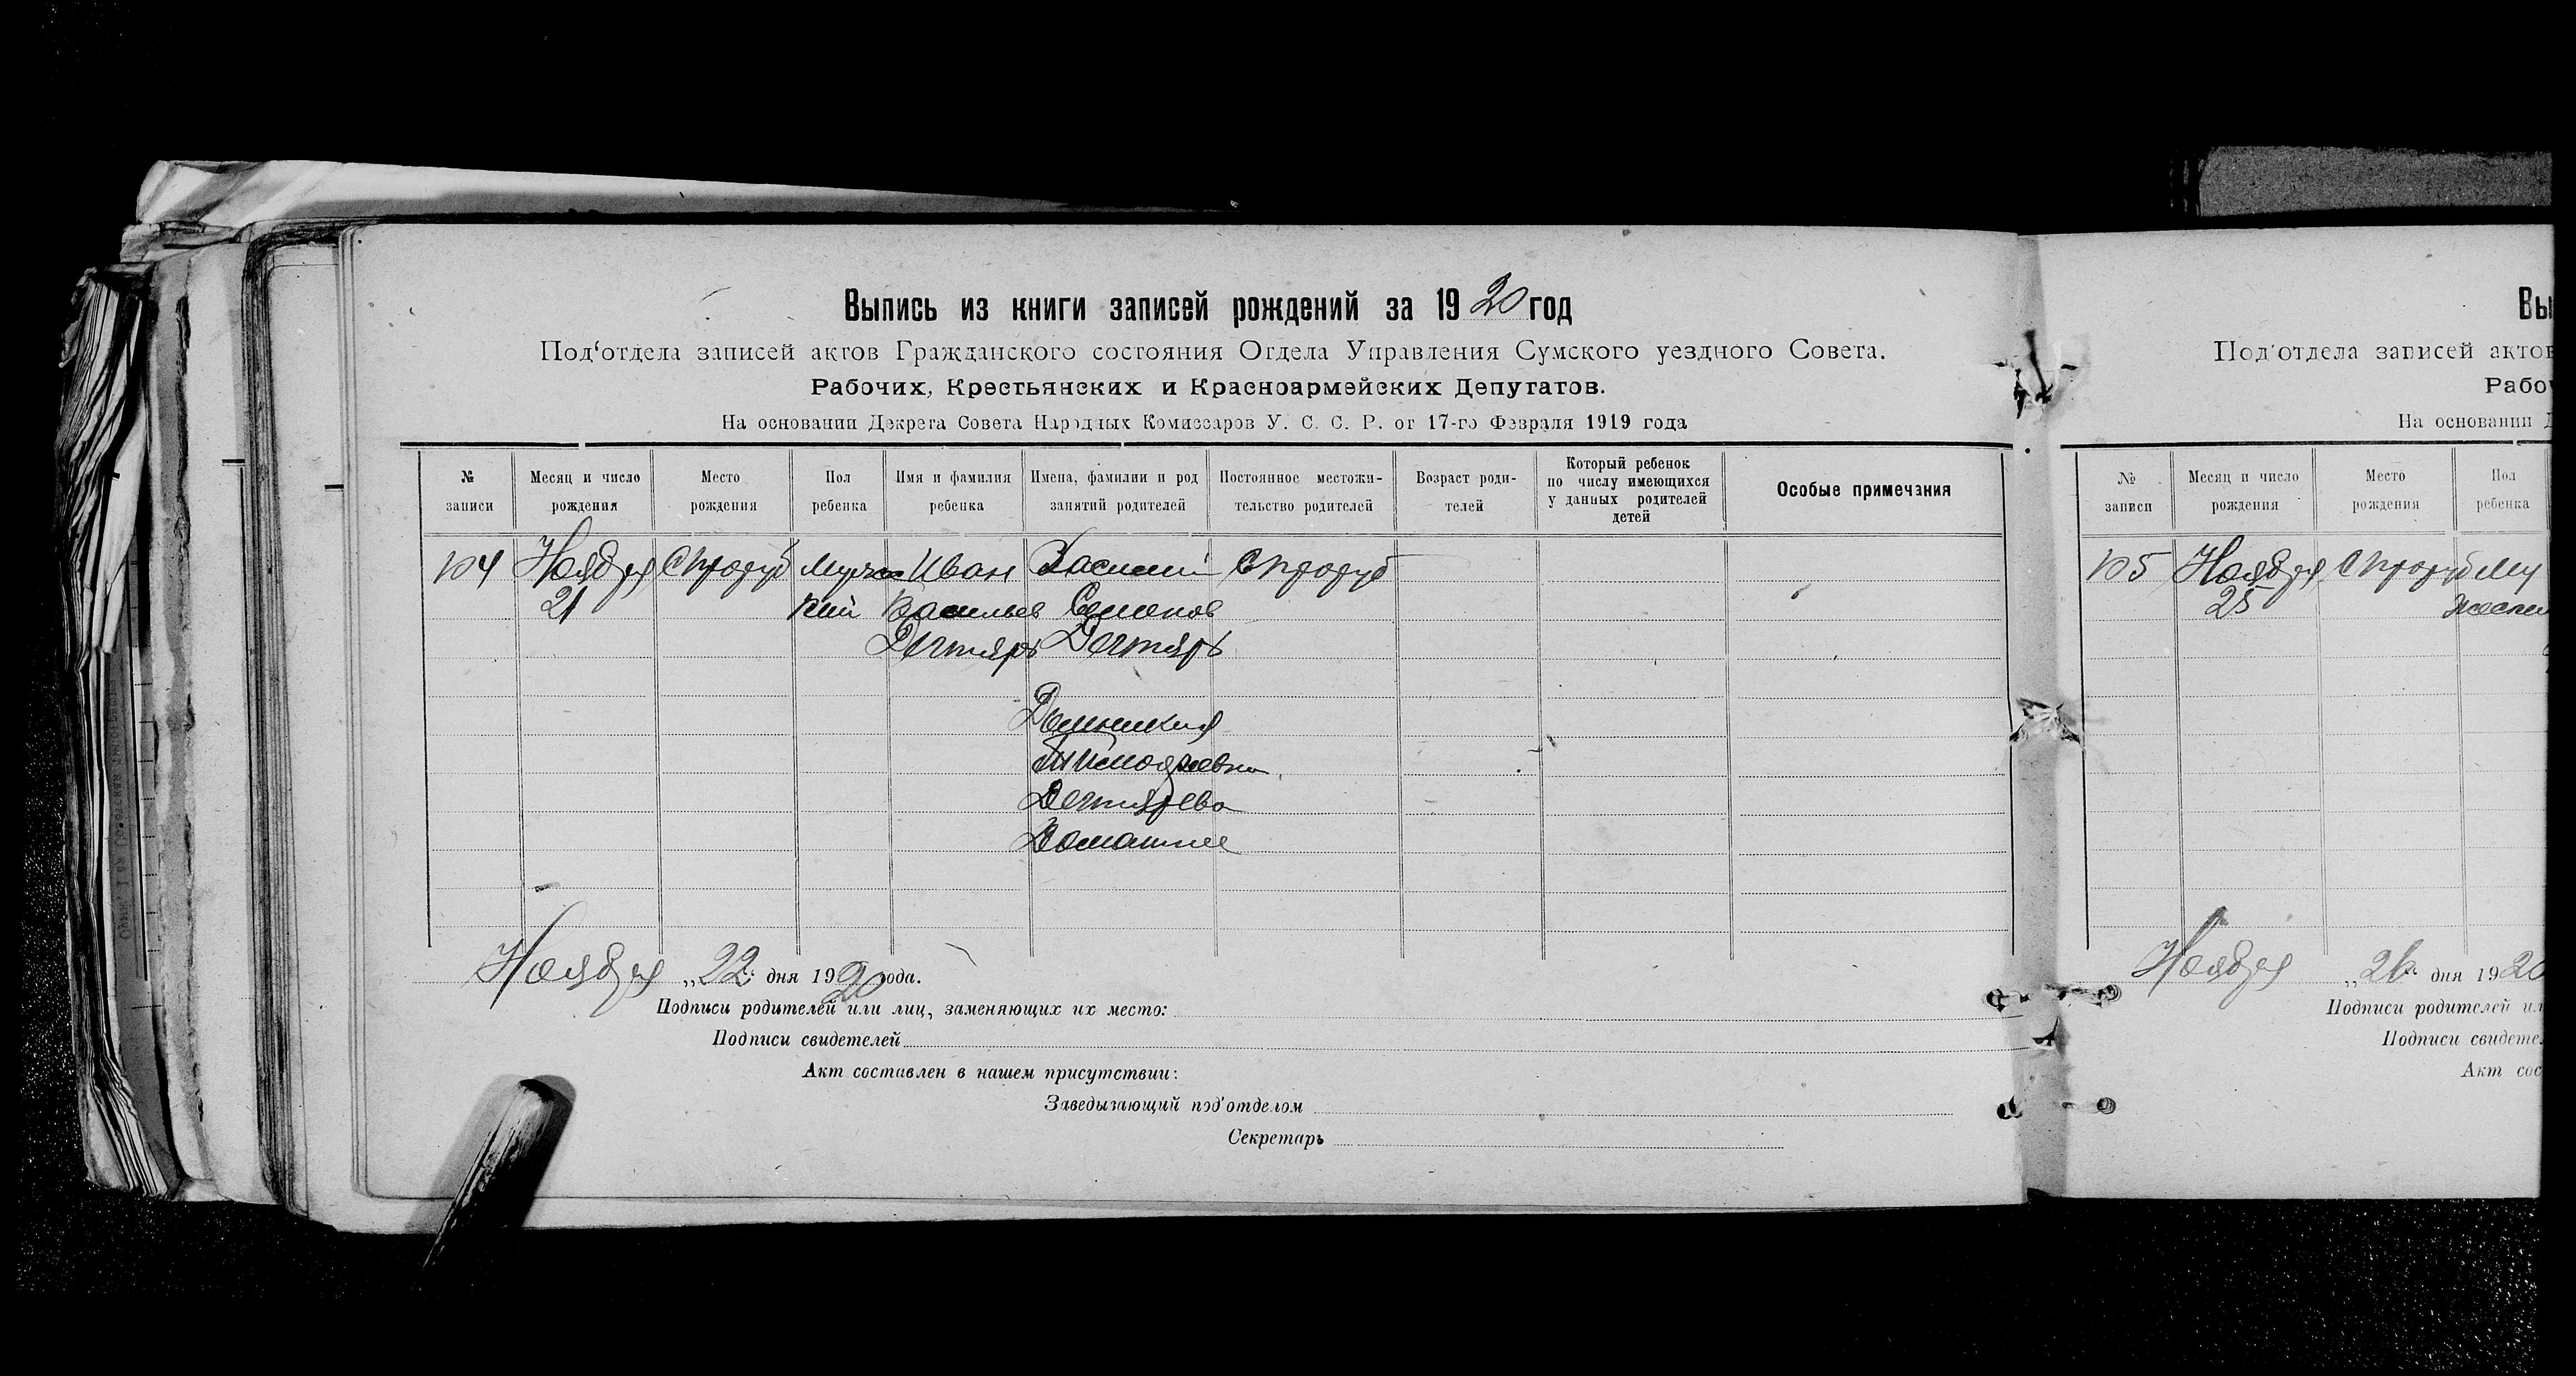 Выпись из книги записей рождений за 1920 год
Под'отдела записей актов Гражданского состояния Отдела Управления Сумского уездного Совета.
Рабочих, Крестьянских и Красноармейских Депутатов.
На основании Декрета Совета Народных Комиссаров У. С. С. Р. от 17-го Февраля 1919 года
№ записи
Месяц и число рождения
Место рождения
Пол ребенка
Имя и фамилия ребенка
Имена, фамилии и род занятий родителей
Постоянное местожительство родителей
Возраст родителей
Который ребенок по числу имеющихся у данных родителей детей
Особые примечания
104 Ноября С Проруб Мужес Иван Василий С Проруб
21 кий Васильев Семенов
Дегтярь Дегтярь
Тимофеевна
Дегтярева
Домашнее
Ноября „22" дня 1920 года.
Подписи родителей или лиц, заменяющих их место:
Подписи свидетелей
Акт составлен в нашем присутствии:
Заведывающий под'отделом
Секретарь
Вы
Под'отдела записей актов
Рабоч
На основании Д
№ записи
Месяц и число рождения
Место рождения
Пол ребенка
105 Ноября С Проруб Му
25 жеск
Ноября „26" дня 1920
Подписи родителей ил
Подписи свидетел
Акт сос